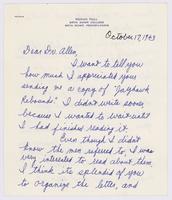 ROCKEFELLER HALL
BRYN MAWR COLLEGE
BRYN MAWR, PENNSYLVANIA
October 17, 1943
Dear Dr. Allen,
I want to tell you
how much I appreciated your
sending me a copy of "Jayhawk
Rebounds". I didn't write sooner
because I wanted to wait until
I had finished reading it.
Even though I didn't
know the men referred to, I was
very interested to read about them.
I think its splendid of you
to organize the letter, and